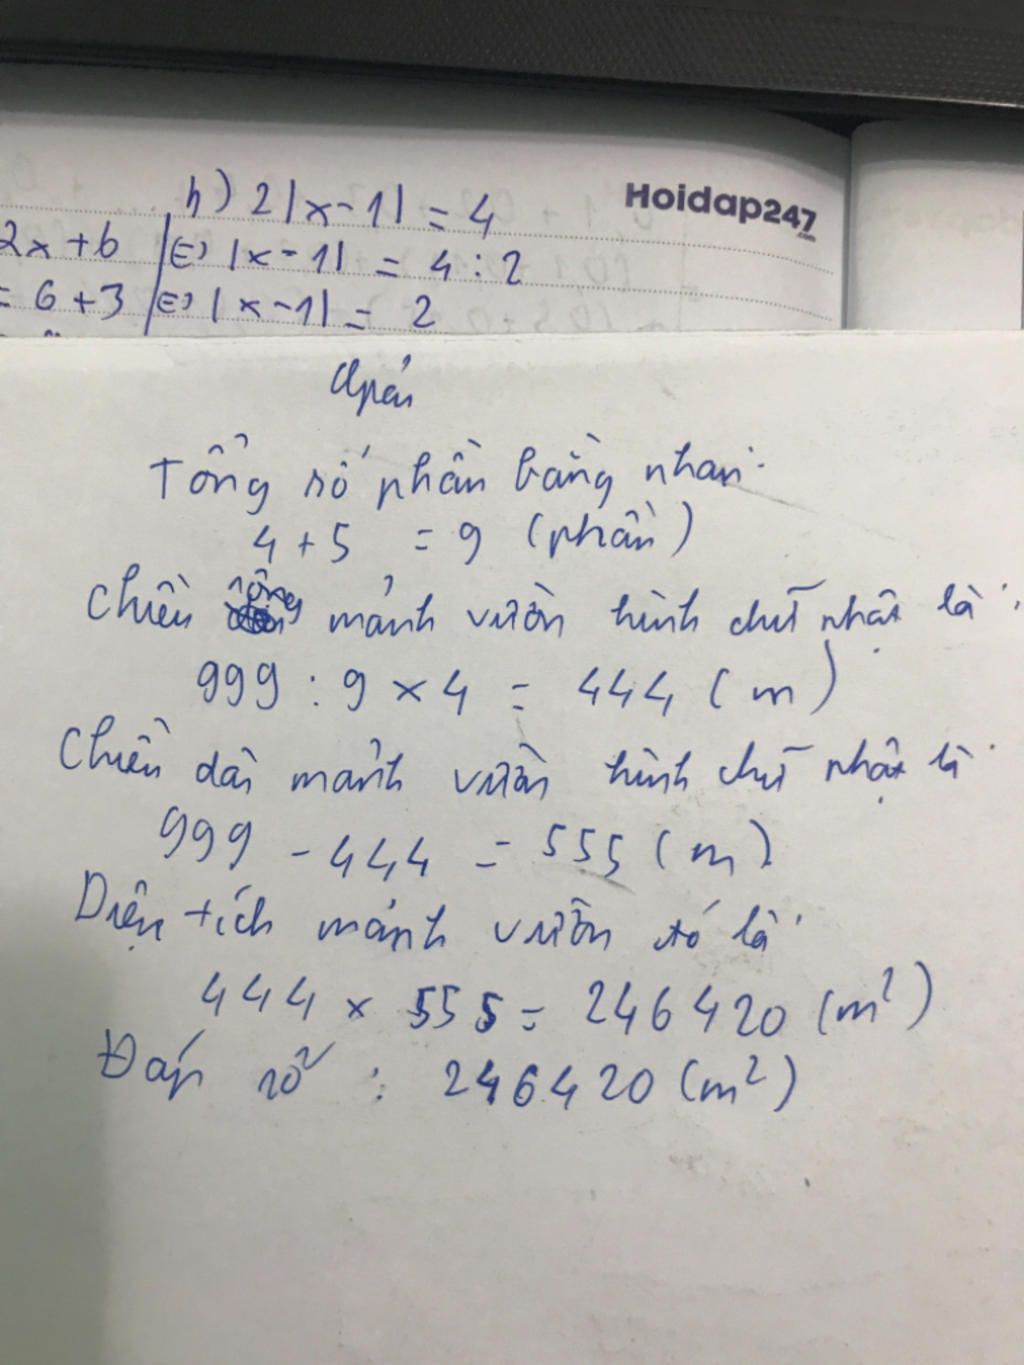 h) 2|x-1| = 4
Hoidap247
.com
2x + 6 | ⇔ |x-1| = 4 : 2
= 6 + 3 | ⇔ |x-1| = 2
Giải
Tổng số phần bằng nhau:
4 + 5 = 9 (phần)
Chiều rộng mảnh vườn hình chữ nhật là:
999 : 9 × 4 = 444 (m)
Chiều dài mảnh vườn hình chữ nhật là:
999 - 444 = 555 (m)
Diện tích mảnh vườn đó là:
444 × 555 = 246420 (m²)
Đáp số : 246420 (m²)